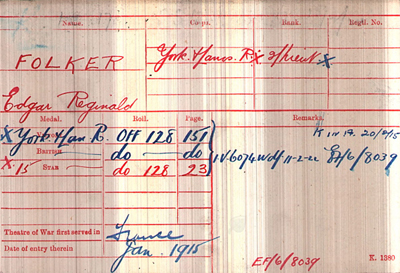 Name. Corps. Rank. Regtl. No.
FOLKER York. & Lancs. R. X 2/Lieut X
Edgar Reginald
Medal. Roll. Page. Remarks.
X Victory York & Lan R. OFF 128 151 K in A. 20/2/15
British do do IV/6074 NW/ 11-2-22 EF/6/8039
X 15 Star do 128 23
Theatre of War first served in France
Date of entry therein Jan. 1915
EF/6/8039 K. 1380